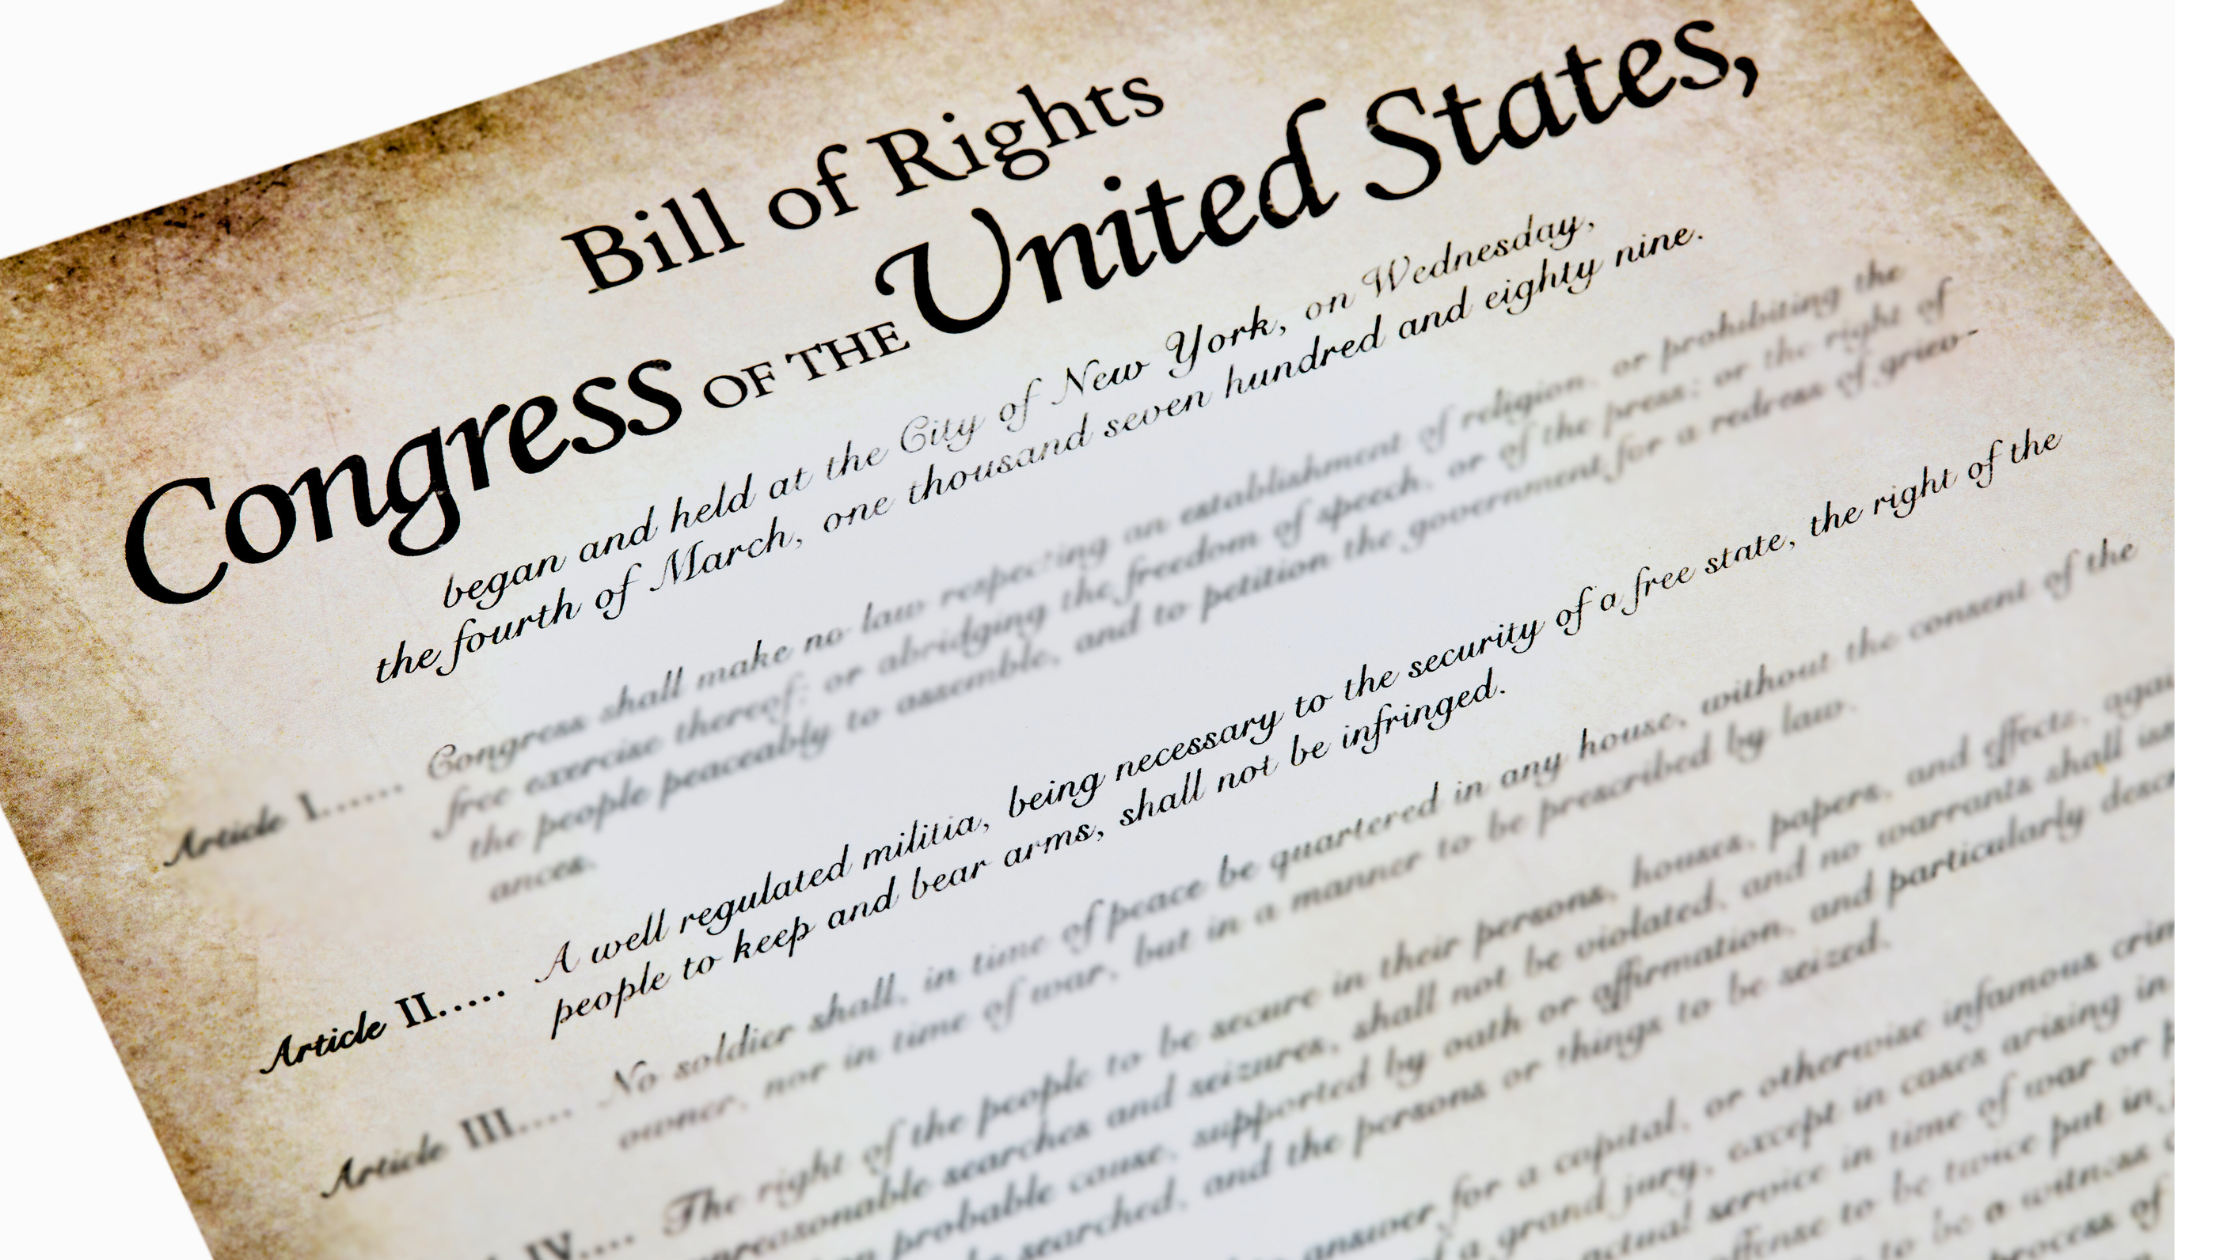 Bill of Rights
Congress OF THE United States,
began and held at the City of New York, on Wednesday,
the fourth of March, one thousand seven hundred and eighty nine.
Article I...... Congress shall make no law respecting an establishment of religion, or prohibiting the
free exercise thereof; or abridging the freedom of speech, or of the press; or the right of
the people peaceably to assemble, and to petition the government for a redress of griev-
ances.
Article II..... A well regulated militia, being necessary to the security of a free state, the right of the
people to keep and bear arms, shall not be infringed.
Article III.... No soldier shall, in time of peace be quartered in any house, without the consent of the
owner, nor in time of war, but in a manner to be prescribed by law.
IV.... The right of the people to be secure in their persons, houses, papers, and effects,
searches and seizures, shall not be violated, and no warrants shall
probable cause, supported by oath or affirmation, and particularly
searched, and the persons or things to be seized.
answer for a capital, or otherwise infamous
a grand jury, except in cases arising in
actual service in time of war or
offense to be twice put in
to be a witness
process of